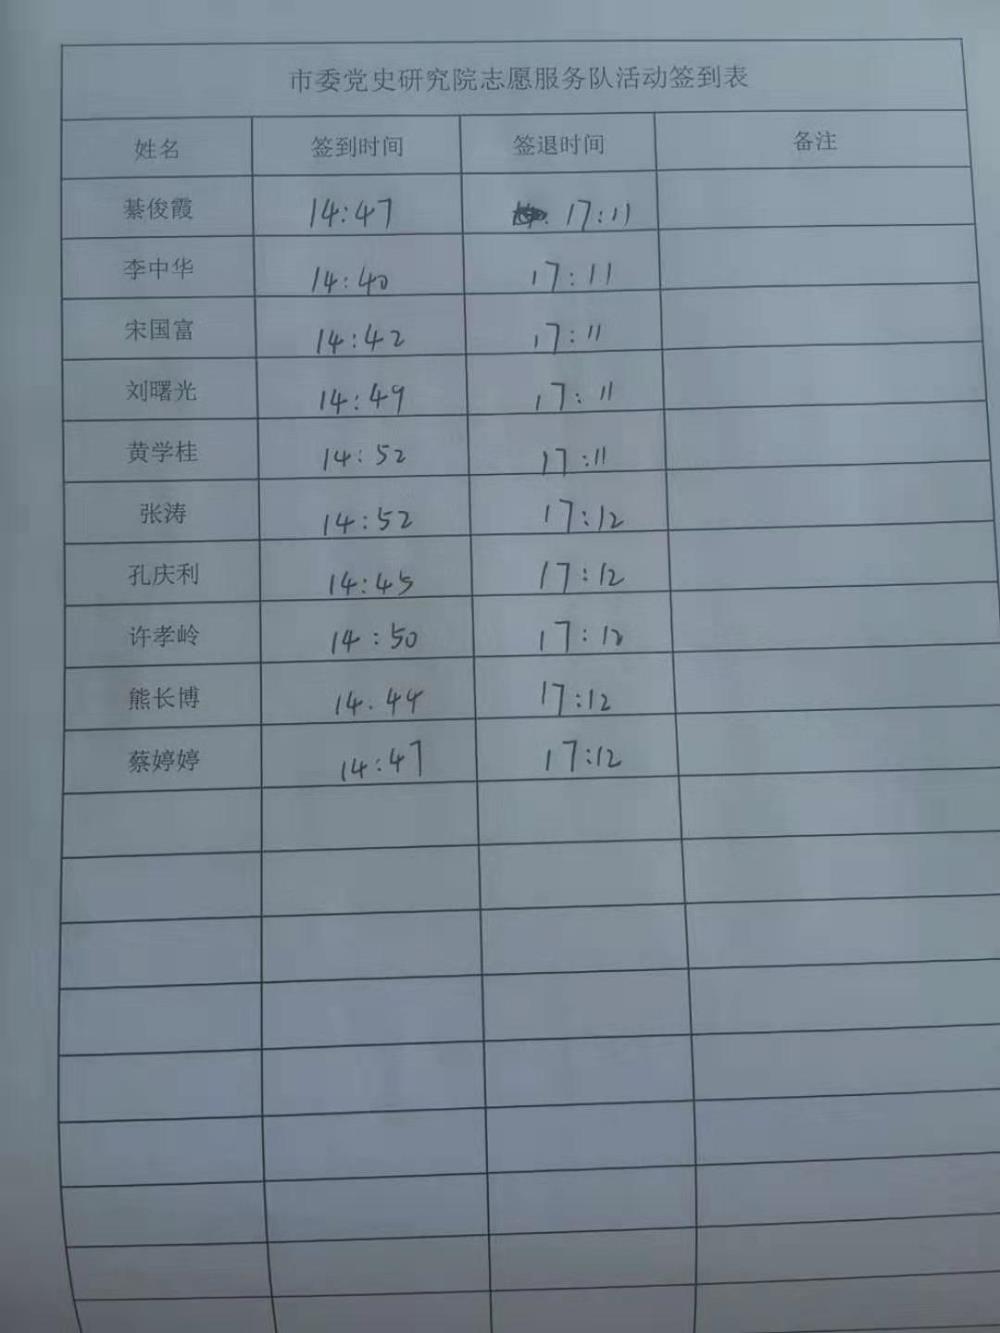 市委党史研究院志愿服务队活动签到表
姓名 签到时间 签退时间 备注
綦俊霞 14:47 17:11
李中华 14:40 17:11
宋国富 14:42 17:11
刘曙光 14:49 17:11
黄学桂 14:52 17:11
张涛 14:52 17:12
孔庆利 14:45 17:12
许孝岭 14:50 17:12
熊长博 14.44 17:12
蔡婷婷 14:47 17:12